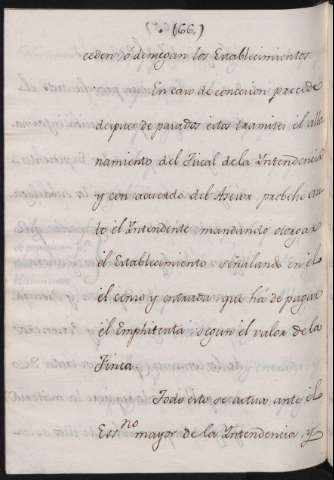 (66.)
ceden ó deniegan los Establecimientos.
En caso de concesion precede
despues de pasados estos tramites el alla
namiento del Fiscal de la Intendencia
y con acuerdo del Asesor probehe au
to el Intendente mandando otorgar
el Establecimiento señalando en él
el censo y entrada que há de pagar
el Emphiteuta segun el valor de la
Finca.
Todo esto se actua ante el
Ess.no mayor de la Intendencia, y